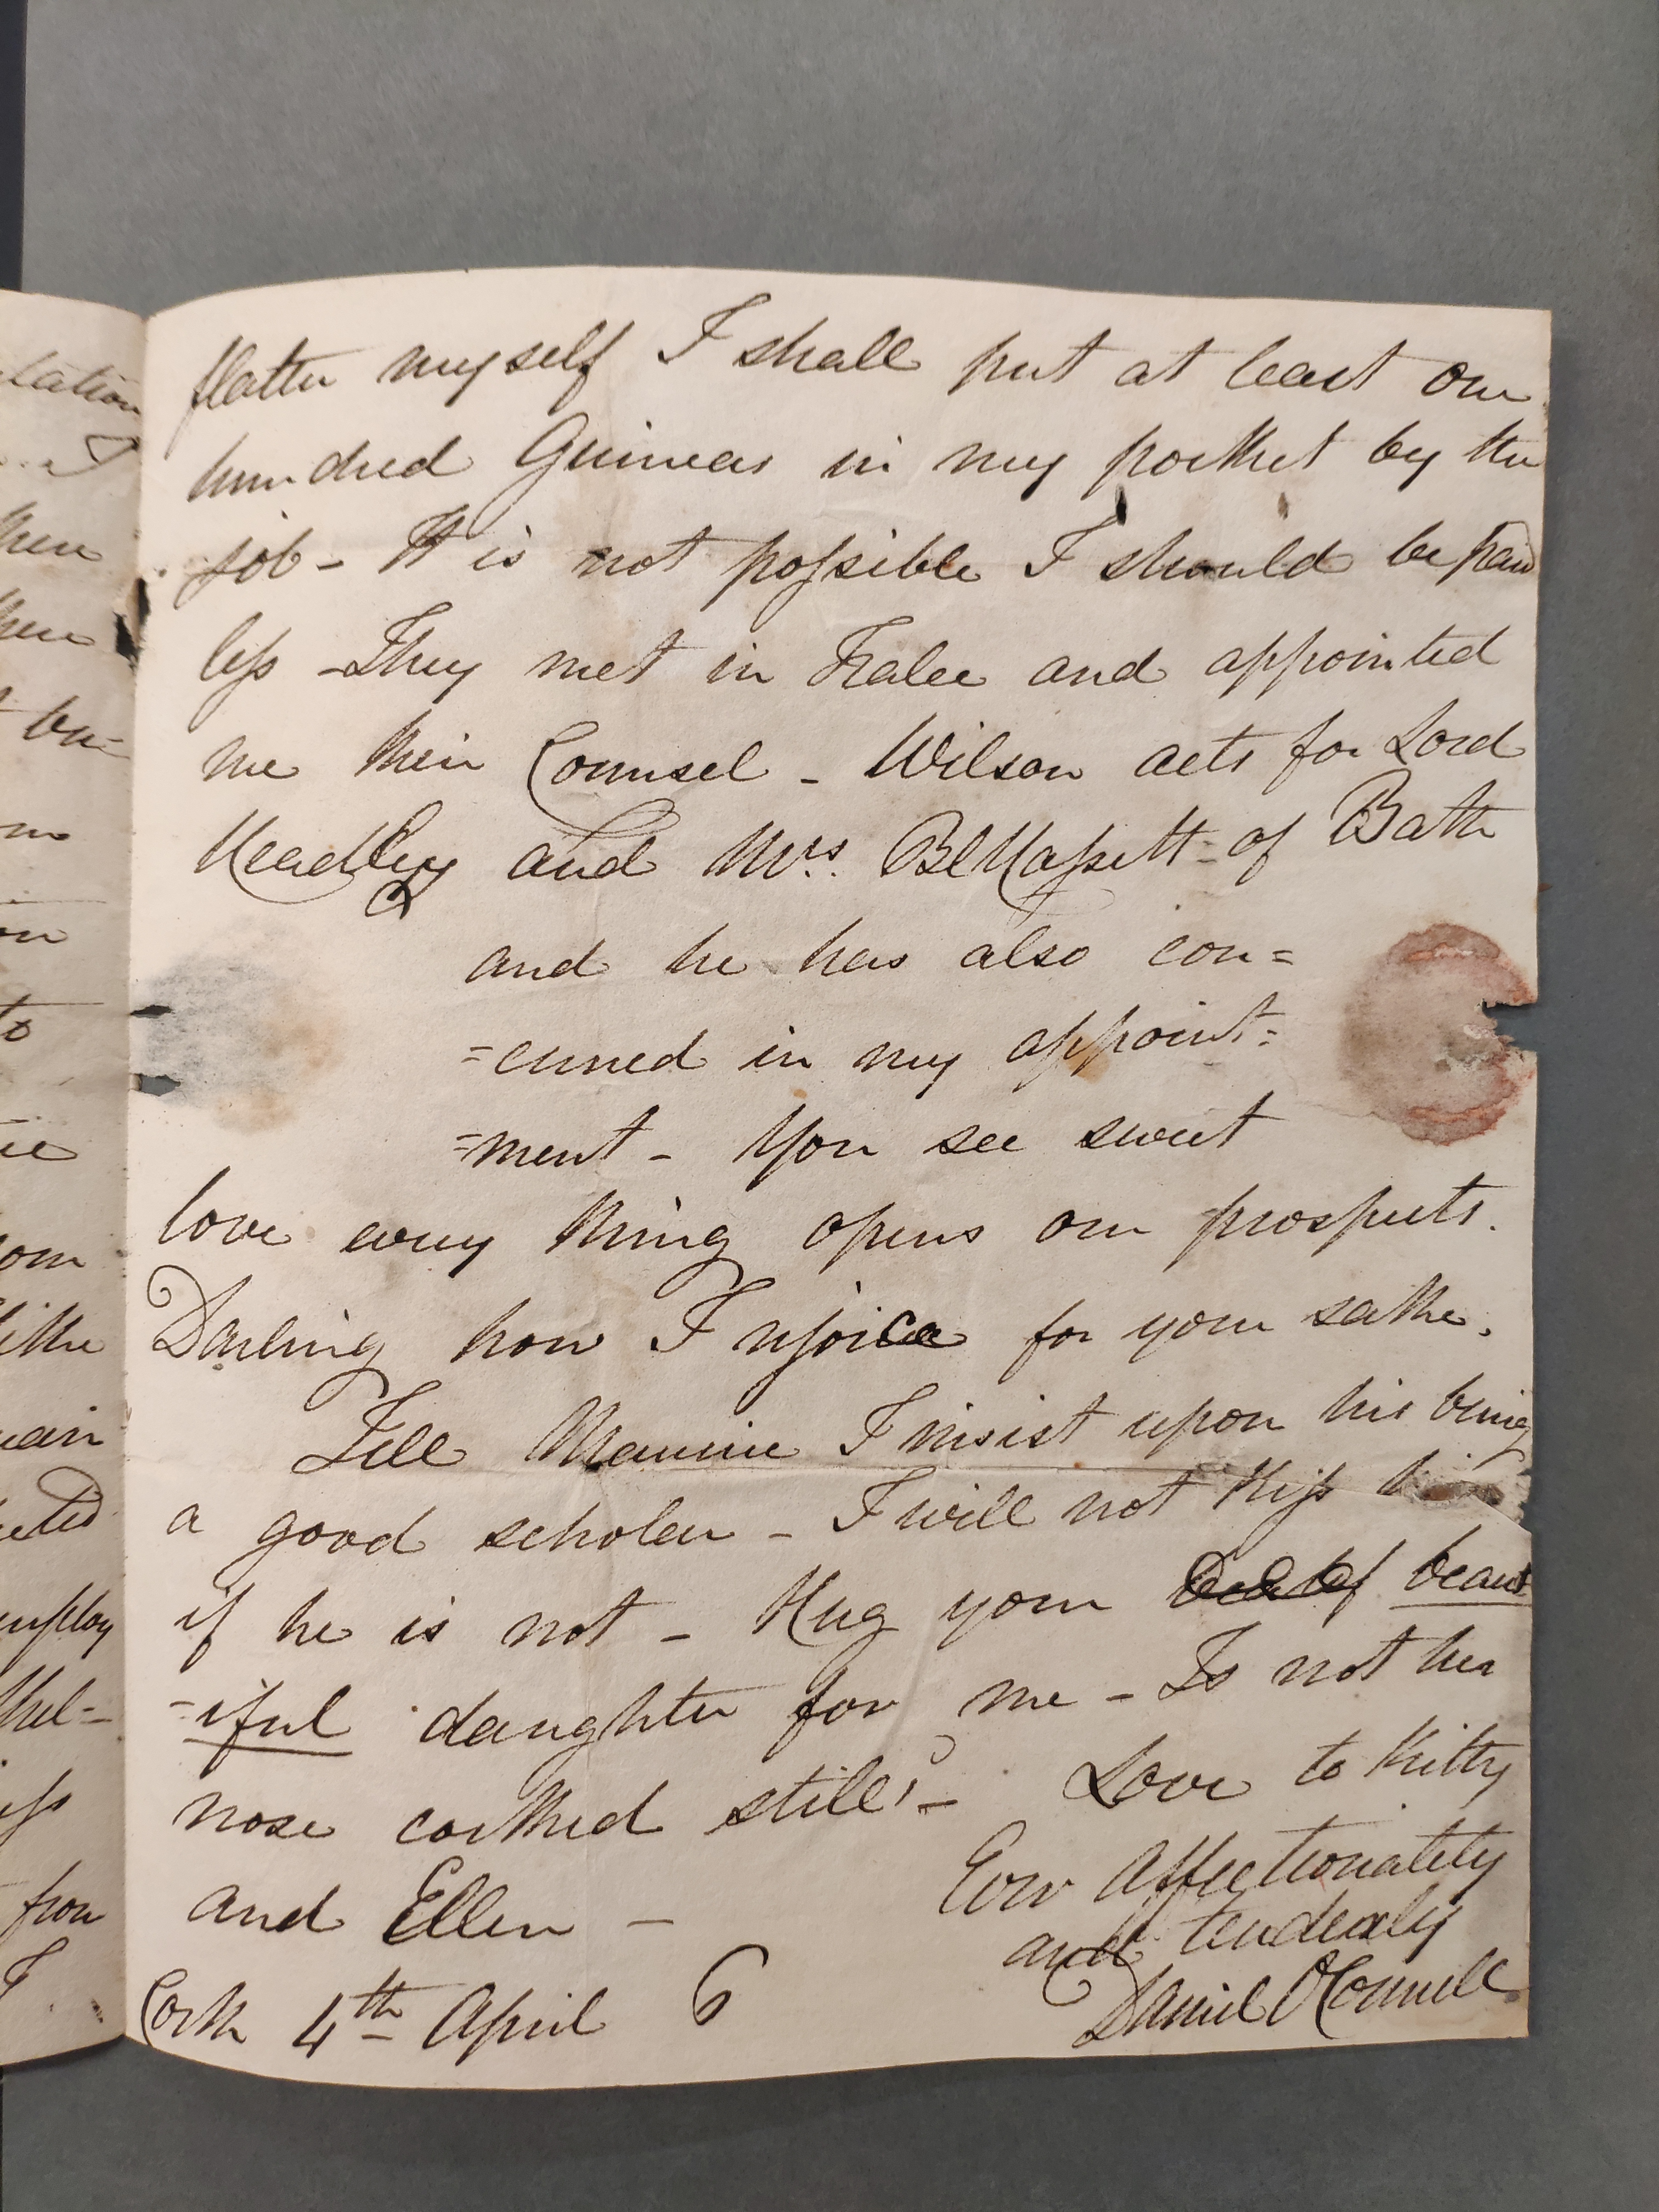 flatter myself I shall put at least one
hundred Guineas in my pocket by the
job - It is not possible I should be paid
less - They met in Tralee and appointed
me their Counsel - Wilson acts for Lord
Headley and Mrs. Blennerhassett of Bath
and he has also con=
=curred in my appoint=
=ment - You see sweet
love every thing opens our prospects.
Darling how I rejoice for your sake.
Tell Maurice I insist upon his being
a good scholar - I will not kiss him
if he is not - Hug your beaut
=iful daughter for me - Is not her
nose cocked still? - Love to Kitty
and Ellen -
Ever Affectionately
and tenderly
Daniel O'Connell
Cork 4th April 6
lation
I
then
then
om
on
to
om
ain
employ
from
I